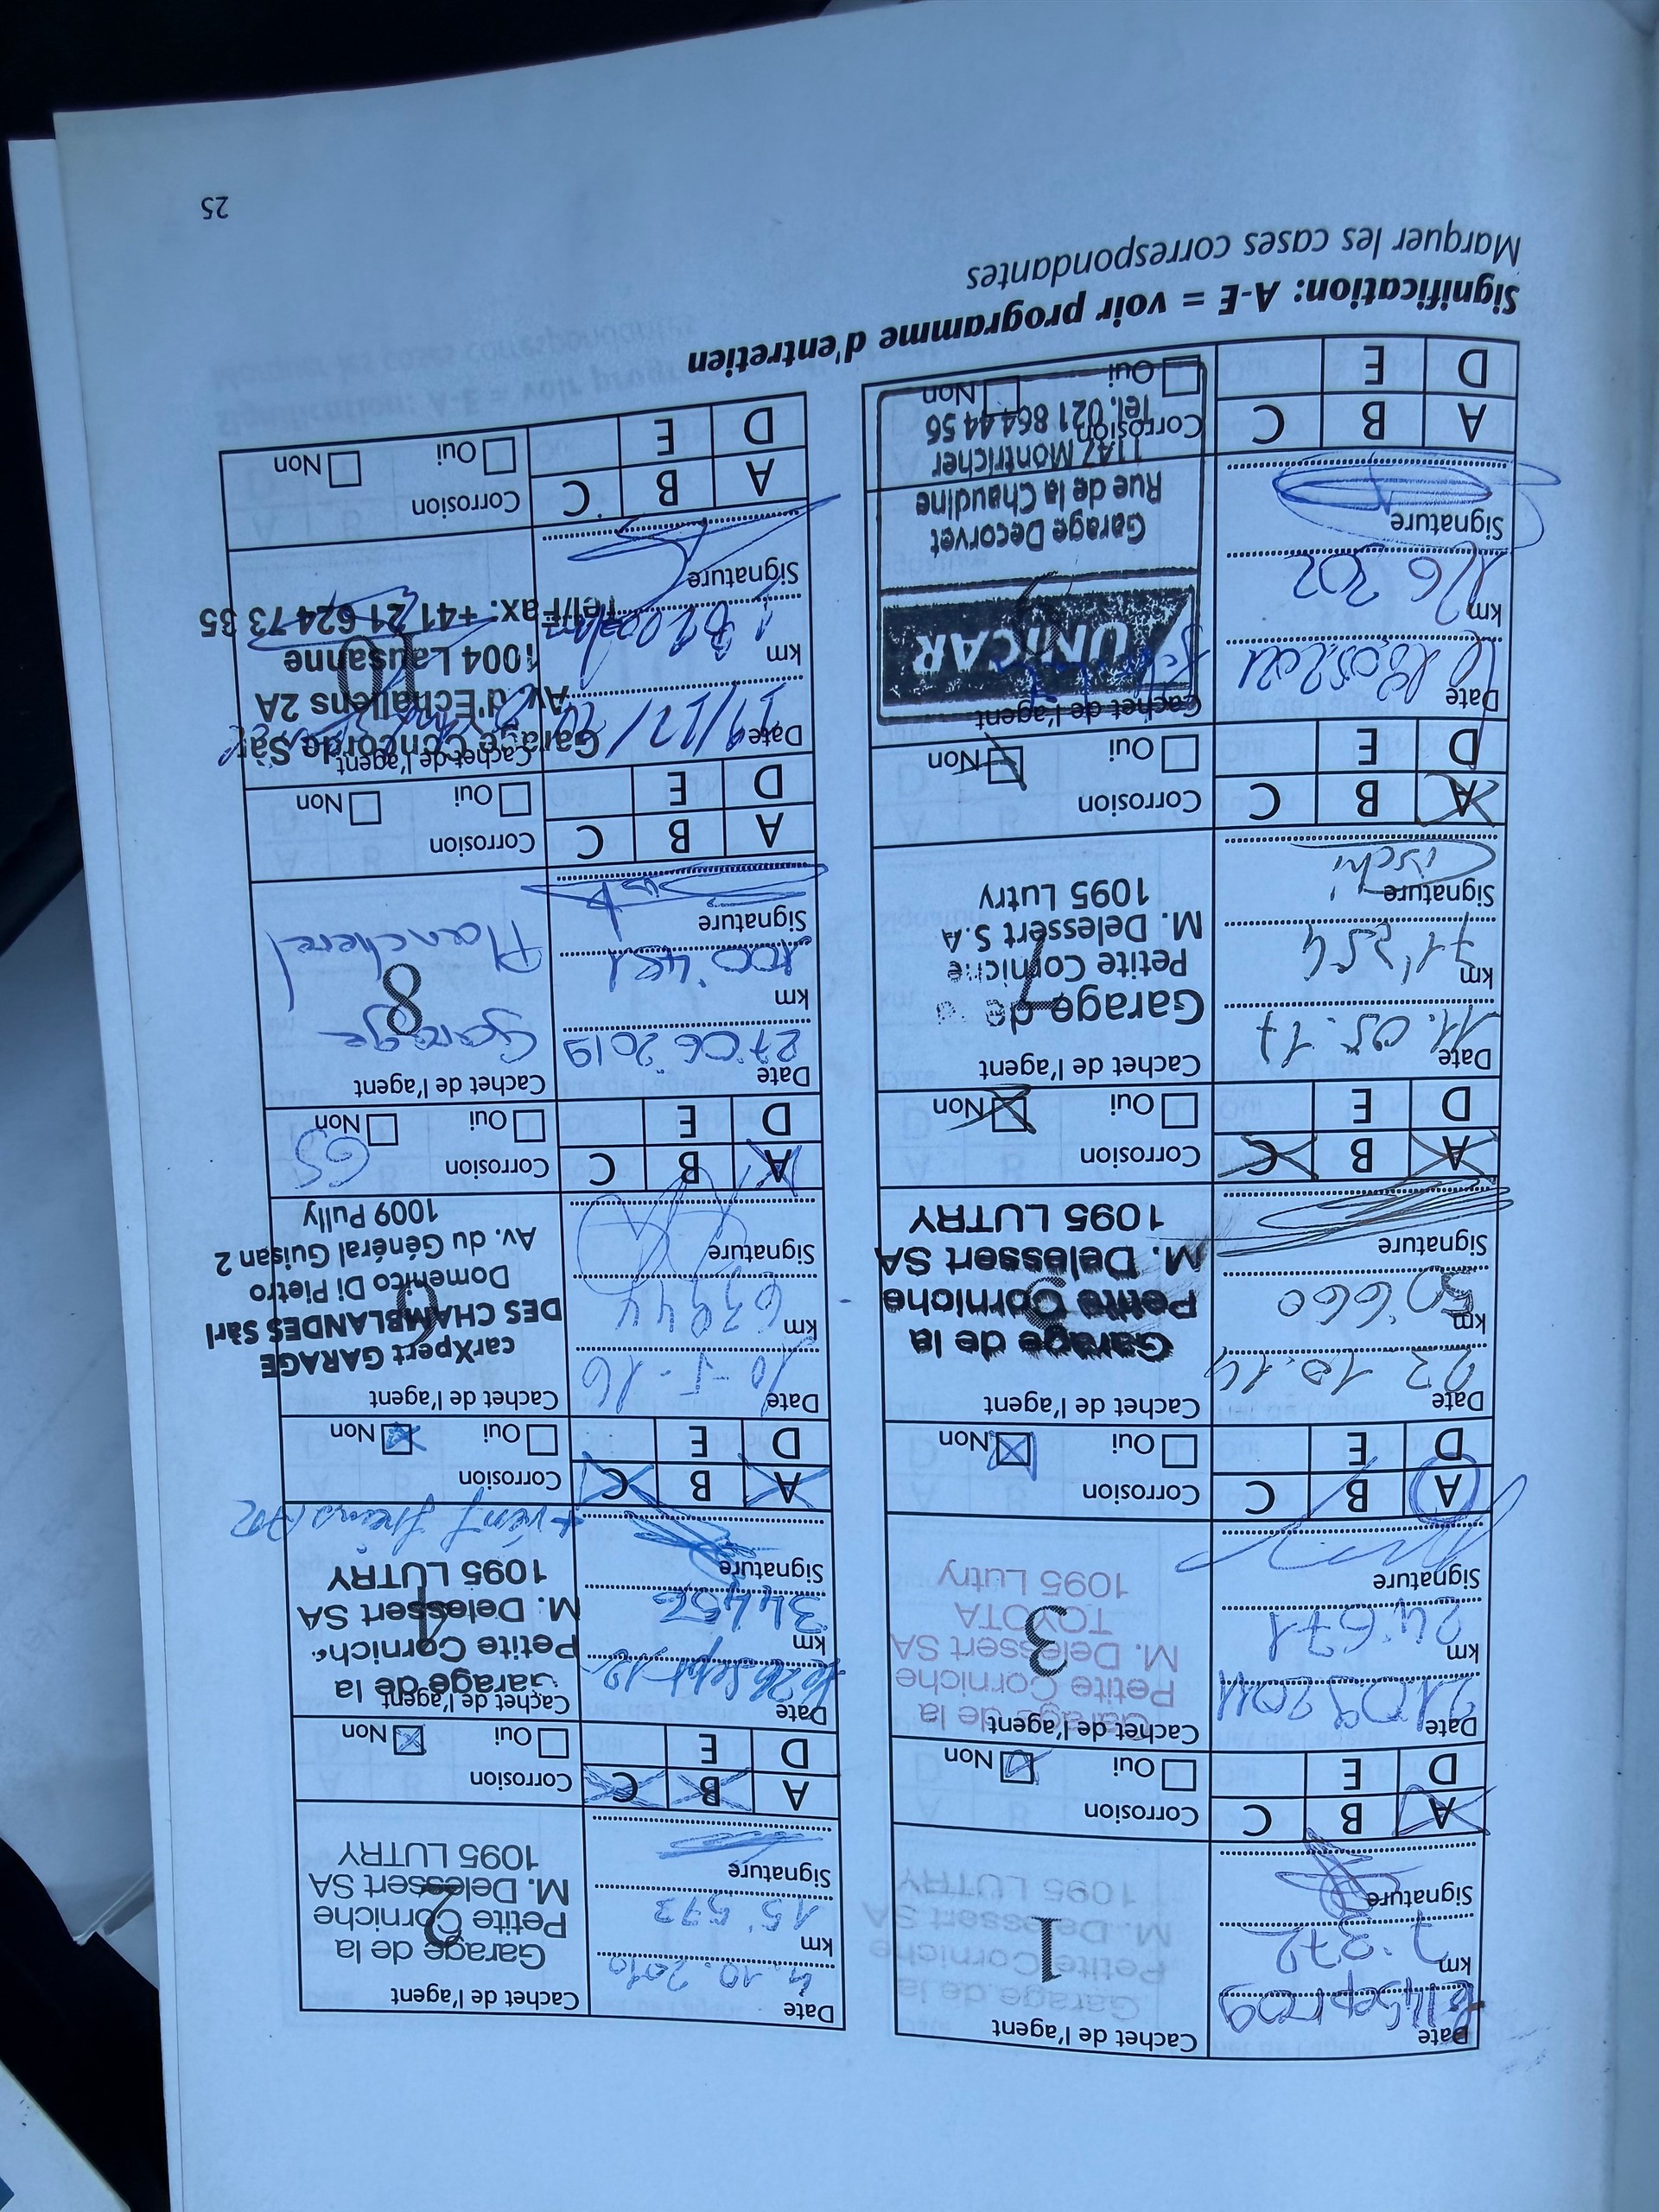 Date
le 14 Sept 09
km
7.372
Signature
Cachet de l'agent
1
Garage de la
Petite Corniche
M. Delessert SA
1095 LUTRY
A B C
D E
Corrosion
Oui Non
Date
4.10.2010
km
15'573
Signature
Cachet de l'agent
2
Garage de la
Petite Corniche
M. Delessert SA
1095 LUTRY
A B C
D E
Corrosion
Oui Non
Date
21 09 2011
km
24.671
Signature
Cachet de l'agent
3
Garage de la
Petite Corniche
M. Delessert SA
TOYOTA
1095 Lutry
A B C
D E
Corrosion
Oui Non
Date
le 26 Sept 12
km
34456
Signature
Cachet de l'agent
4
Garage de la
Petite Corniche
M. Delessert SA
1095 LUTRY
+ vérif freins
A B C
D E
Corrosion
Oui Non
Date
22.10.14
km
50'660
Signature
Cachet de l'agent
Garage de la
Petite Corniche
M. Delessert SA
1095 LUTRY
A B C
D E
Corrosion
Oui Non
Date
km
63944
Signature
Cachet de l'agent
carXpert GARAGE
DES CHAMBLANDES Sàrl
Domenico Di Pietro
Av. du Général Guisan 2
1009 Pully
A B C
D E
Corrosion
Oui Non
Date
11.05.17
km
71'254
Signature
Cachet de l'agent
7
Garage de la
Petite Corniche
M. Delessert S.A
1095 Lutry
A B C
D E
Corrosion
Oui Non
Date
27.06.2019
km
100'481
Signature
Cachet de l'agent
8
Garage
Plancherel
A B C
D E
Corrosion
Oui Non
Date
le 18.05.2021
km
126 202
Signature
Cachet de l'agent
UNICAR
Garage Decorvet
Rue de la Chaudine
1147 Montricher
Tél. 021 864 44 56
A B C
D E
Corrosion
Oui Non
Date
km
Signature
Cachet de l'agent
10
Garage Concorde Sàrl
Av. d'Echallens 2A
1004 Lausanne
Tel/Fax: +41 21 624 73 35
A B C
D E
Corrosion
Oui Non
Signification: A-E = voir programme d'entretien
Marquer les cases correspondantes
25